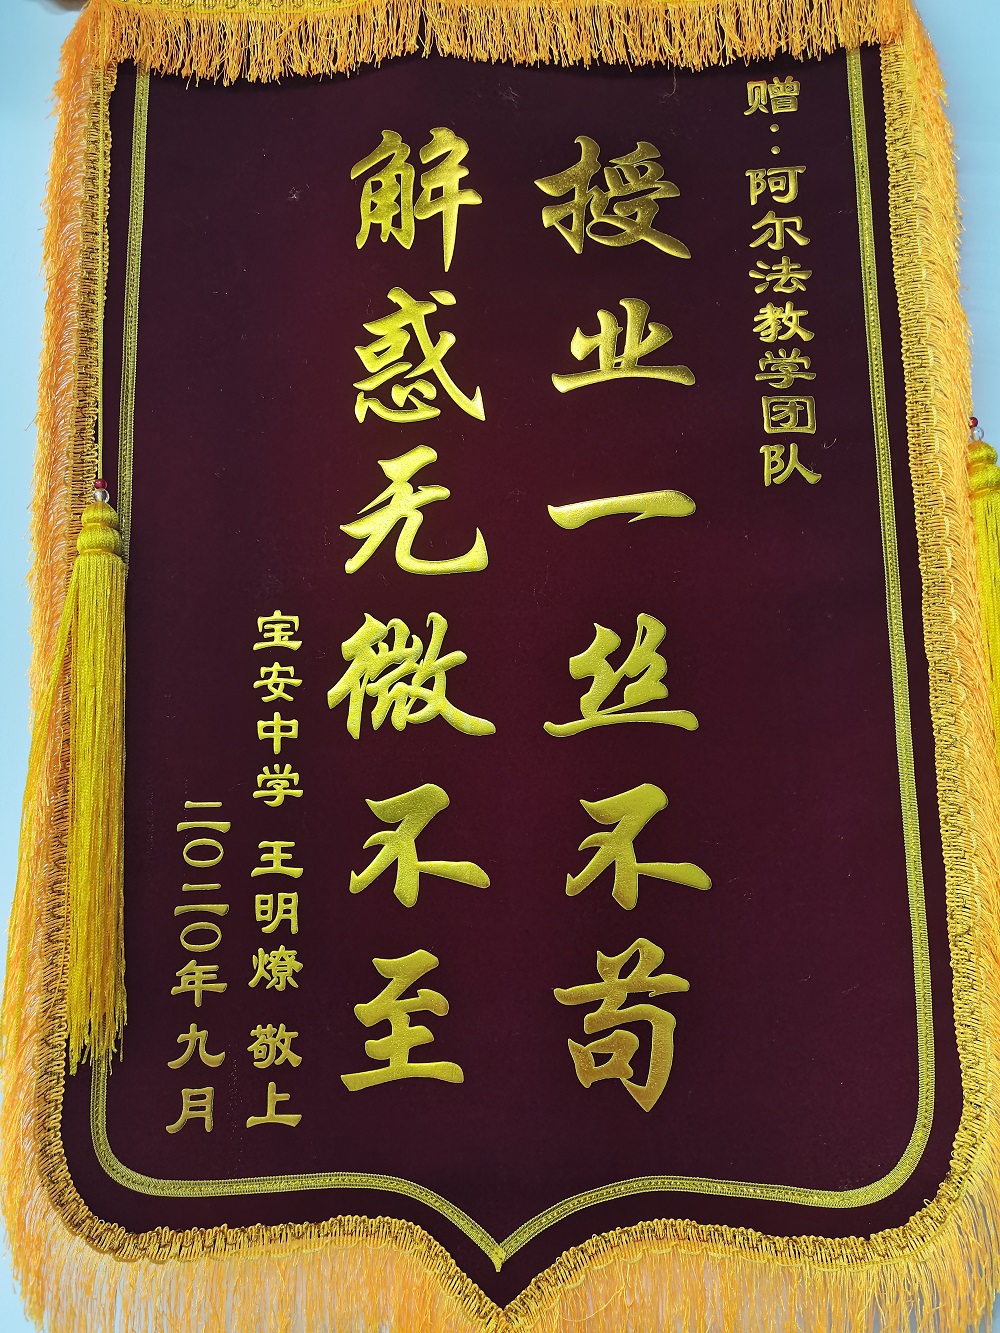 赠：阿尔法教学团队
授业一丝不苟
解惑无微不至
宝安中学 王明燎 敬上
二〇二〇年九月